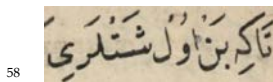 58 تَاكِهِ بَنْ اوُلْ شَتْلَرِي